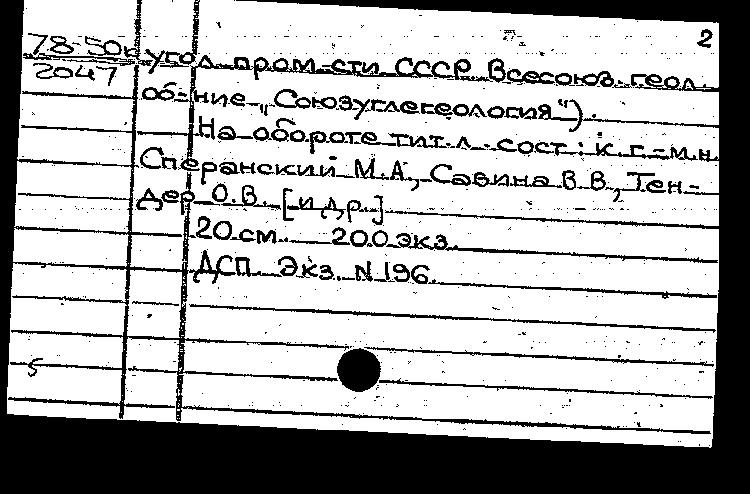 2
78-50к угол.пром-сти СССР Всесоюз.геол.
2047
об-ние „Союзуглегеология“).
На обороте тит.л. сост: к.г.-м.н.
Сперанский М.А., Савина В.В., Тен-
дер О.В. [и др.]
20 см. 200 экз.
ДСП. Экз. N 196.
5